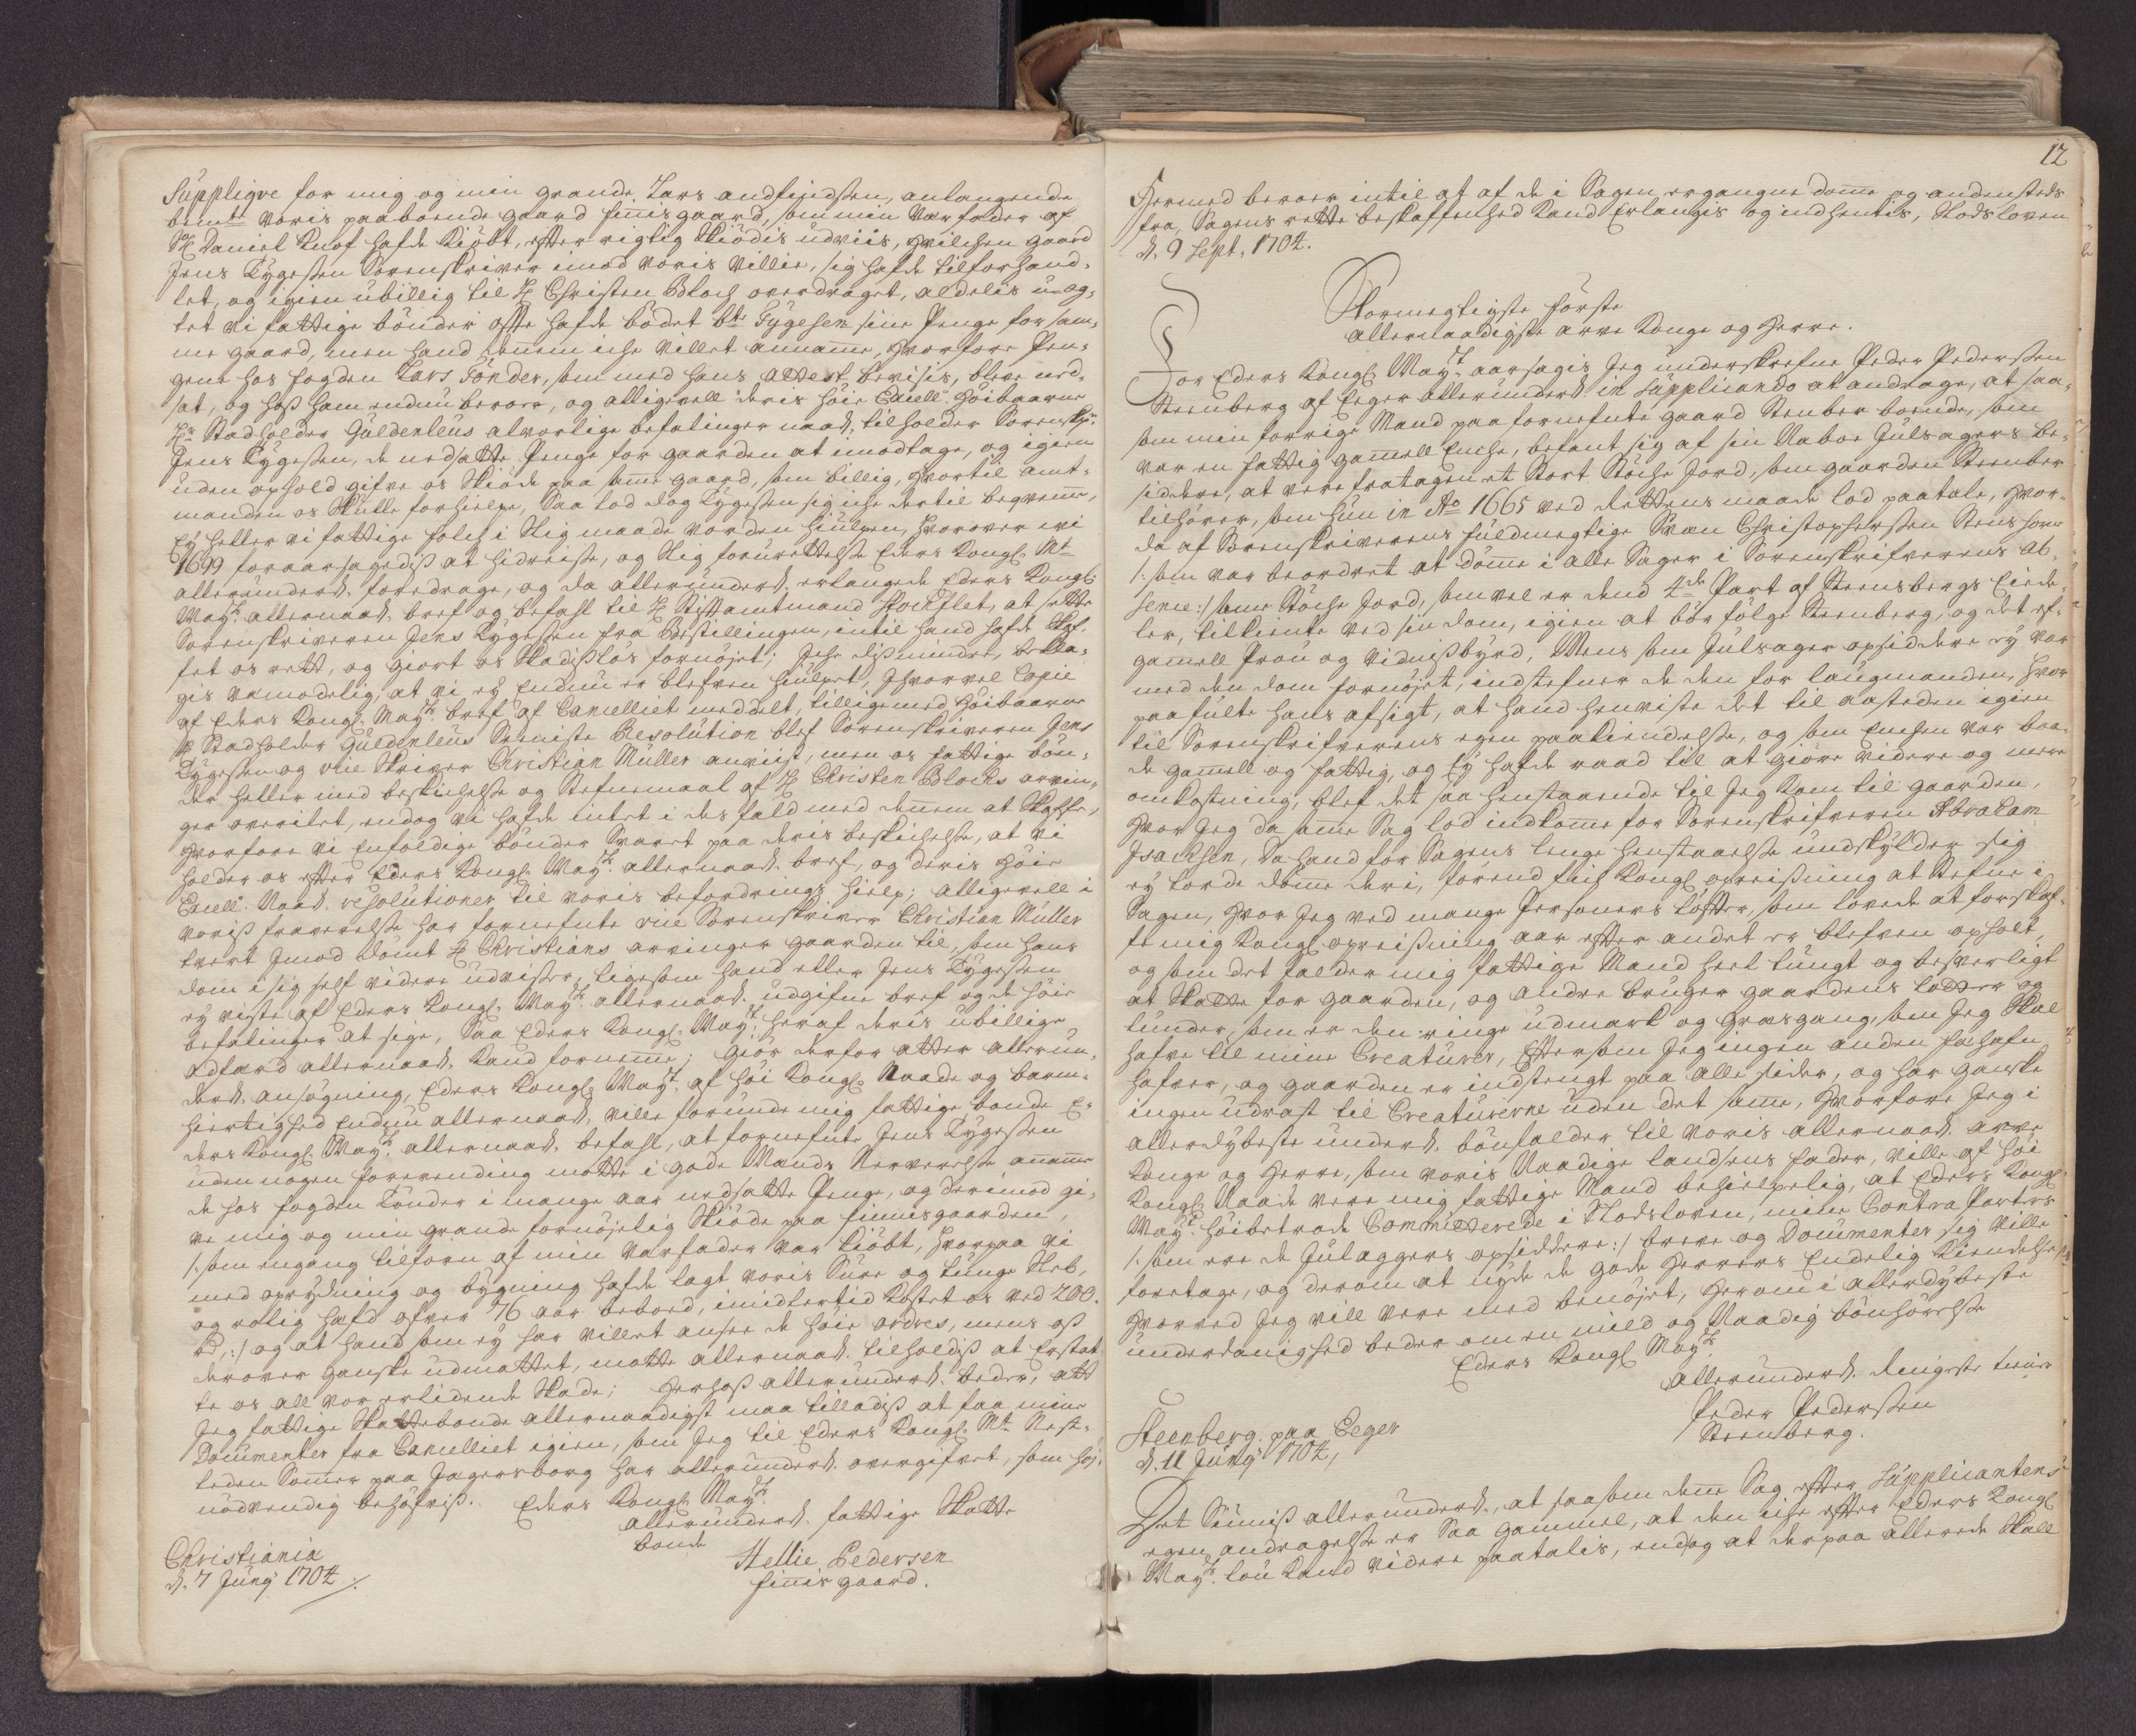 Suppligve for mig og min grande Lars andfindssen, anlangende
bemte voris paaboende gaard finnisgaard, som min Varfader af
Sr Daniel Knof hafde kiöbt, efter rigtig Skiödis udviis, hvilchen gaard
Jens Tygessen Sorenskriver imod voris villie, sig hafde tilforhand-
let, og igien ubillig til Hr Christen Bloch overdraget, aldelis u-ag-
tet vi fattige bönder ofte hafde bödet bte Tygesen sine Penge for sam-
me gaard, men hand dennem iche villet annamme, hvorfore Pen-
gene hos fogden Lars Tönder, som med hans Attest bevisis, bleve ned-
sat, og hoss ham endnu beroer, og alligevell deris höie Excell. Höibaarne
Hr Stadholder Güldenleus alvorlige befalinger naad. tilholder Sorenskr:
Jens Tygessen, de nedsatte Penge for gaarden at imodtage, og igien
uden ophold gifve os Skiöde paa samme gaard, som billig, hvortil Amt-
manden os skulle forhielpe, Saa lod dog Tygessen sig iche dertil beqvemme,
Ey heller vi fattige folch i slig maade vorden hiulpen, hvorover vi
1699 foraarsagediss at hidreise, og slig foruretttelse Eders Kongl. Mt
allerunderd. foredrage, og da allerunderd. erlangede Eders Kongl.
Mayt. allernaad. bref og befahl til Hr Stiftamtmand Stochflet, at sette
Sorenskriveren Jens Tygessen fra Bestillingen, intil hand hafde skaf-
fet os rett, og giort os skadisslös fornöjet; Iche diss mindre, bekla-
gis vemodelig, at vi ey Endnu er blefven hiulpet, Ihvorvel Copie
af Eders Kongl. Mayt. bref af Cancelliet meddelt, tilligemed höibaarne
Hr Stadholder Güldenleus Seeniste Resolution blef Sorenskriveren Jens
Tygessen og vice Skriver Christian Müller anviist, men os fattige bön-
der heller med beskichelse og Stefnemaal af Hr Christen Blochs arvin-
ger overilet, endog vi hafde intet i des fald med dennem at skaffe,
hvorfore vi Enfoldige bönder svaret paa deris beskichelse, at vi
holder os efter Eders Kongl. Mayt. allernaad. bref, og deris höie
Excell. Naad. resolutioner til voris befordrings hielp; alligevell i
voriss fraverelse har fornefnte vice Sorenskriver Christian Müller
tvert Imod dömt Hr Christians arvinger gaarden til, som hans
dom i sig self videre udviser, ligesom hand eller Jens Tygessen
ey viste af Eders Kongl. Mayt. allernaad. udgifne bref og de höie
befalinger at sige, Saa Eders Kongl. Mayt. heraf deris ubillige
adfærd allernaad. kand fornemme; giör derfor atter allerun-
derd. ansögning, Eders Kongl. Mayt. af höi Kongl. Naade og barm-
hiertighed Endnu allernaad. ville forunde mig fattige bonde E-
ders Kongl. Mayt. allernaad. befahl, at fornefnte Jens Tygessen
uden nogen forevending motte i gode Mands Nerverelse annamme
de hos fogden Tönder i mange aar nedsatte Penge, og derimod gi-
ve mig og min grande fornöjelig Skiöde paa finnisgaarden,
/: som engang tilforn af min Varfader var kiöbt, hvorpaa vi
med oprydning og bygning hafde lagt voris Sure og tunge Sleb,
og rolig hafd ofver 76 aar beboed, imidlertid kostet os ved 200.
rd, :/ og at hand som ey har villet ansee de höie ordres, mens oss
derover ganske udmattet, motte allernaad. tilholdiss at Erstat-
te os all vor erlidende Skade; Herhoss allerunderd. beder, att
Jeg fattige Skattebonde allernaadigst maa tilladiss at faa mine
Documenter fra Cancelliet igien, som Jeg til Eders Kongl. Mt Nest-
leden Sommer paa Jægersborg har allerunderd. overgifvet, som höi-
nödvendig behöfviss. Eders Kongl. Mayt.
allerunderd. fattige Skatte
bonde
Christiania
d. 7 Juny 1704 /.
Stellie Pedersen
finnis gaard.
12
Hermed beroer intil at af de i Sagen ergangne domme og andensteds
fra, Sagens rette beskaffenhed kand Erlangis og indhentis, Slodsloven
d. 9 Sept. 1704.
Stormegtigste Förste
allernaadigste arve Konge og Herre.
For Eders Kongl. Mayt. aarsagis Jeg underskrefne Peder Pederssen
Steenberg af Eeger allerunderd. in Supplicando at andrage, at saa-
som min forrige Mand paa fornefnte gaard Stenber boende, som
var en fattig gammell Enche, befant sig af sin Naboe Julsagers be-
siddere, at vere fratagen et Stort Støche Jord, som gaarden Steenber
tilhörer, som hun in Ao 1665 ved Rettens maade lod paatale, hvor-
da af Sorenskriverens fuldmegtige Svan Christophersen Stenshorn
/: som var beordret at dömme i alle Sager i Sorenskrifverens ab-
sence :/ samme Stöche Jord, som vel er dend 4de Part af Steensbergs Eiede-
ler, tilkiente ved sin dom, igien at bör fölge Steenberg, og det ef-
gamell Prov og Vidnissbyrd, Mens som Julsager opsiddere ey var
med den dom fornöjet, indstefner de den for laugmanden, hvor
paafulte hans afsigt, at hand henviste det til aasteden igien
til Sorenskrifverens egen paakiendelse, og som Enchen var baa-
de gamell og fattig, og Ey hafde raad til at giöre videre og mere
omkostning, blef det saa henstaaende til Jeg kom til gaarden,
hvor Jeg da samme Sag lod indkomme for Sorenskrifveren Abraham
Isachsen, da hand for Sagens lenge henstaaelse undskylder sig
ey torde dömme deri, forend fich Kongl. opreisning at Stefne i
Sagen, hvor Jeg ved mange Personers löfter, som lovede at forskaf-
fe mig Kongl. opreisning aar efter andet er blefven opholt,
og som det falder mig fattige Mand heel tungt og besverligt
at Skatte for gaarden, og andre bruger gaardens lotter og
lunder, som er den ringe udmark og græsgang, som Jeg skal
hafve til mine Creaturer, Eftersom Jeg ingen anden fæhafn
hafver, og gaarden er indstengt paa alle sider, og har ganske
ingen udrast til Creaturerne uden det samme, hvorfore Jeg i
allerdybeste underd. bönfalder til voris allernaad. arve
Konge og Herre, som voris Naadige landsens fader, ville af höi
Kongl. Naade vere mig fattige Mand behielpelig, at Eders Kongl.
Mayt. höibetrode Committerede i Slodsloven, mine Contra Parters
/: som ere de Julaggers opsiddere :/ breve og Documenter sig ville
foretage, og derom at nyde de gode Herrers Endelig kiendelse,
hvorved Jeg vill vere med benöjet, herom i allerdybeste
underdanighed beder om en mild og Naadig bönhörelse
Eders Kongl. Mayt.
allerunderd. ringeste tiener
Peder Pederssen
Steenberg.
Steenberg paa Eeger
d. 11 Juny 1704,
Det Siuniss allerunderd., at saasom denne Sag efter Supplicantens
egen andragelse er Saa gammel, at den iche efter Eders Kongl.
Mayt. lou kand videre paatalis, endog at derpaa allerede skall